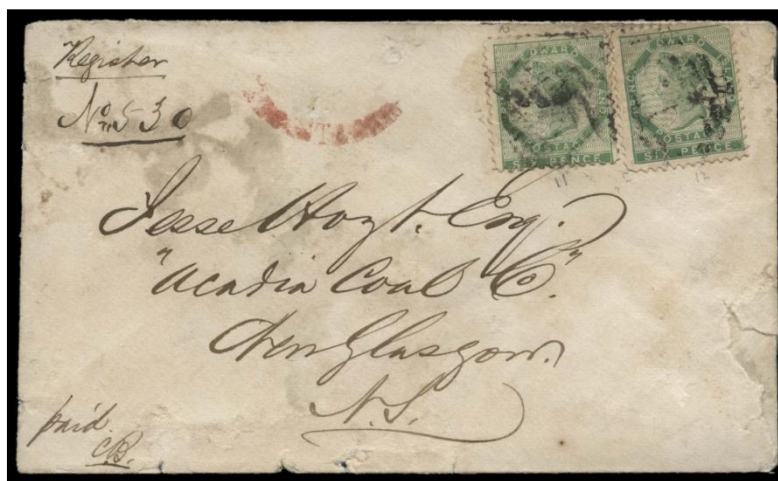 Register
No 530
EDWARD
POSTAGE
SIX PENCE
EDWARD
POSTAGE
SIX PENCE
11
12
Jesse Hoyt. Esq.
"Acadia Coal Co."
New Glasgow.
N.S.
paid.